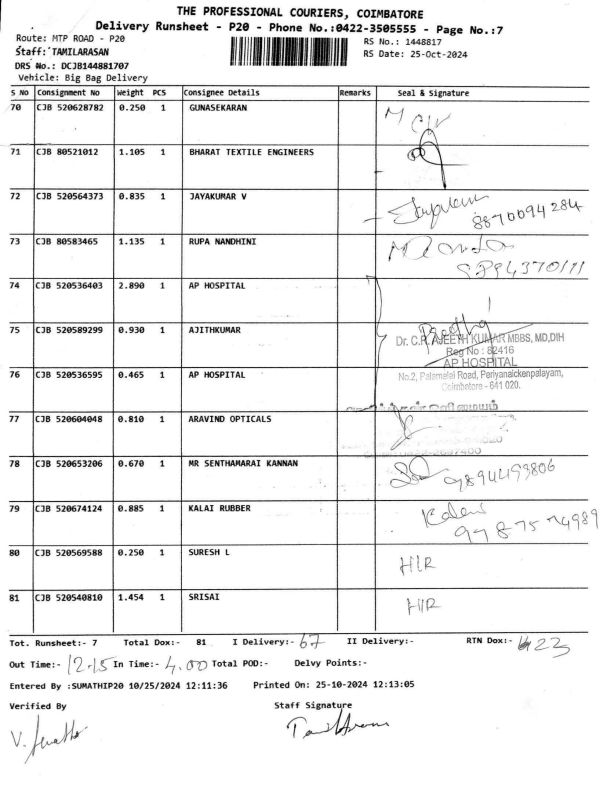 THE PROFESSIONAL COURIERS, COIMBATORE
Delivery Runsheet - P20 - Phone No.:0422-3505555 - Page No.:7
Route: MTP ROAD - P20
RS No.: 1448817
Staff: TAMILARASAN
RS Date: 25-Oct-2024
DRS No.: DCJB144881707
Vehicle: Big Bag Delivery
S No Consignment No Weight PCS Consignee Details Remarks Seal & Signature
70 CJB 520628782 0.250 1 GUNASEKARAN
71 CJB 80521012 1.105 1 BHARAT TEXTILE ENGINEERS
72 CJB 520564373 0.835 1 JAYAKUMAR V
8870094284
73 CJB 80583465 1.135 1 RUPA NANDHINI
74 CJB 520536403 2.890 1 AP HOSPITAL
75 CJB 520589299 0.930 1 AJITHKUMAR
Preetha
Dr. C.R. AJEETH KUMAR MBBS, MD,DIH
Reg No : 82416
76 CJB 520536595 0.465 1 AP HOSPITAL
AP HOSPITAL
No.2, Palamalai Road, Periyanaickenpalayam,
Coimbatore - 641 020.
77 CJB 520604048 0.810 1 ARAVIND OPTICALS
78 CJB 520653206 0.670 1 MR SENTHAMARAI KANNAN
9894493806
79 CJB 520674124 0.885 1 KALAI RUBBER
80 CJB 520569588 0.250 1 SURESH L
H/R
81 CJB 520540810 1.454 1 SRISAI
H/R
Tot. Runsheet:- 7 Total Dox:- 81 I Delivery:- 67 II Delivery:- RTN Dox:- 23
Out Time:- 12.15 In Time:- 4.00 Total POD:- Delvy Points:-
Entered By :SUMATHIP20 10/25/2024 12:11:36 Printed On: 25-10-2024 12:13:05
Verified By Staff Signature